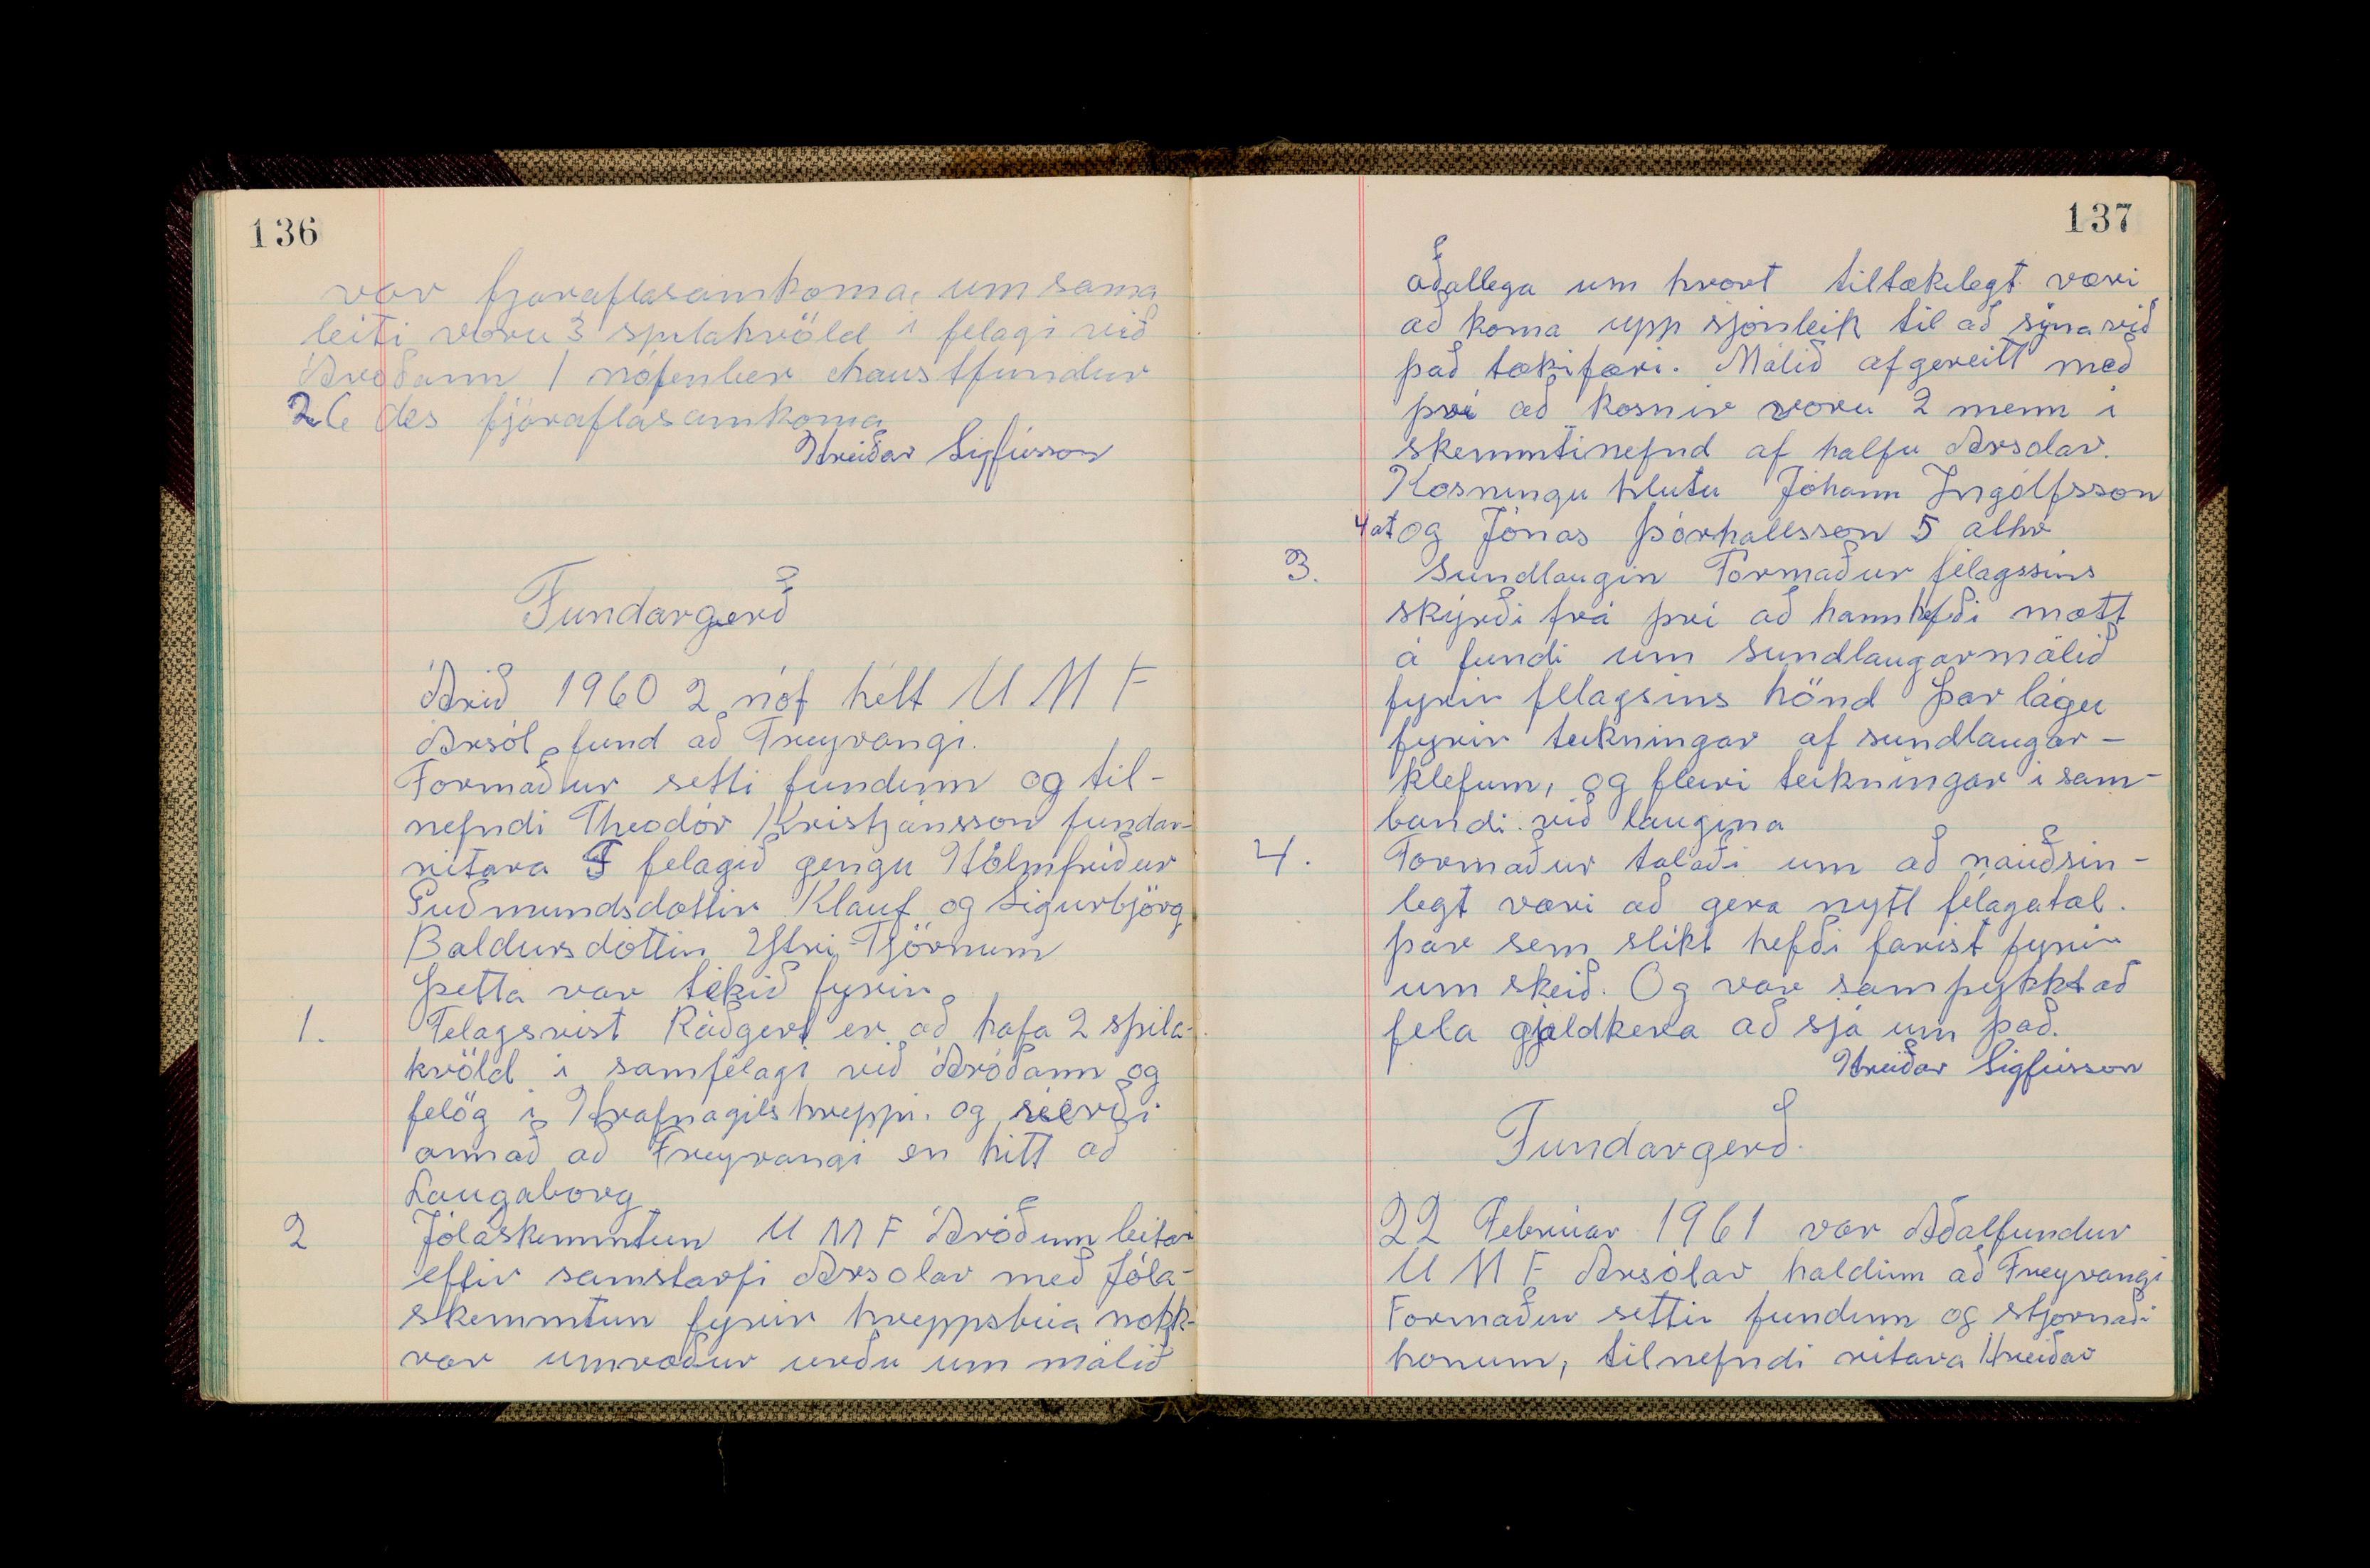 136
var fjaraflasamkoma, um sama
leiti voru 3 spilakvöld i felagi við
Aroðann 1 nófenber haustfundur
26 des fjáraflasamkoma
Hreiðar Sigfússon
Fundargerð
Árið 1960 2 nóf hélt U M F
Ársól fund að Freyvangi.
Formaður setti fundinn og til-
nefndi Theodór Kristjánsson fundar-
ritara Í felagið gengu Hólmfríður
Guðmundsdottir Klauf og Sigurbjörg
Baldursdóttir Ytri-Tjörnum
Þetta var tekið fyrir
1. Felagsvist Ráðgert er að hafa 2 spila-
kvöld i samfélagi við Áróðann og
felög i Hrafnagilshreppi. og verði
annað að Freyvangi en hitt að
Laugaborg
2 Jólaskemmtun U M F Áróðum leitar
eftir samstarfi Arsolar með Jóla-
skemmtun fyrir hreppsbúa nokk-
rar umræður urðu um málið
137
aðallega um hvort tiltækilegt væri
að koma upp sjónleik til að sýna við
það tækifæri. Málið afgreitt með
því að kosnir voru 2 menn i
skemmtinefnd af halfu Arsolar.
Kosningu hlutu Jóhann Ingólfsson
4 at og Jónas Þórhallsson 5 alhv
3. Sundlaugin Formaður félagssins
skýrði frá því að hann hefði mætt
á fundi um sundlaugarmálið
fyrir félagsins hönd Þar lágu
fyrir teikningar af sundlaugar-
klefum, og fleiri teikningar i sam-
bandi við laugina
4. Formaður talaði um að nauðsin-
legt væri að gera nytt félagatal.
þar sem slíkt hefði farist fyrir
um skeið. Og var samþykkt að
fela gjaldkera að sjá um það.
Hreiðar Sigfússon
Fundargerð.
22 Februar 1961 var Aðalfundur
U M F Arsólar haldinn að Freyvangi
Formaður settir fundinn og stjornaði
honum, tilnefndi ritara Hreiðar